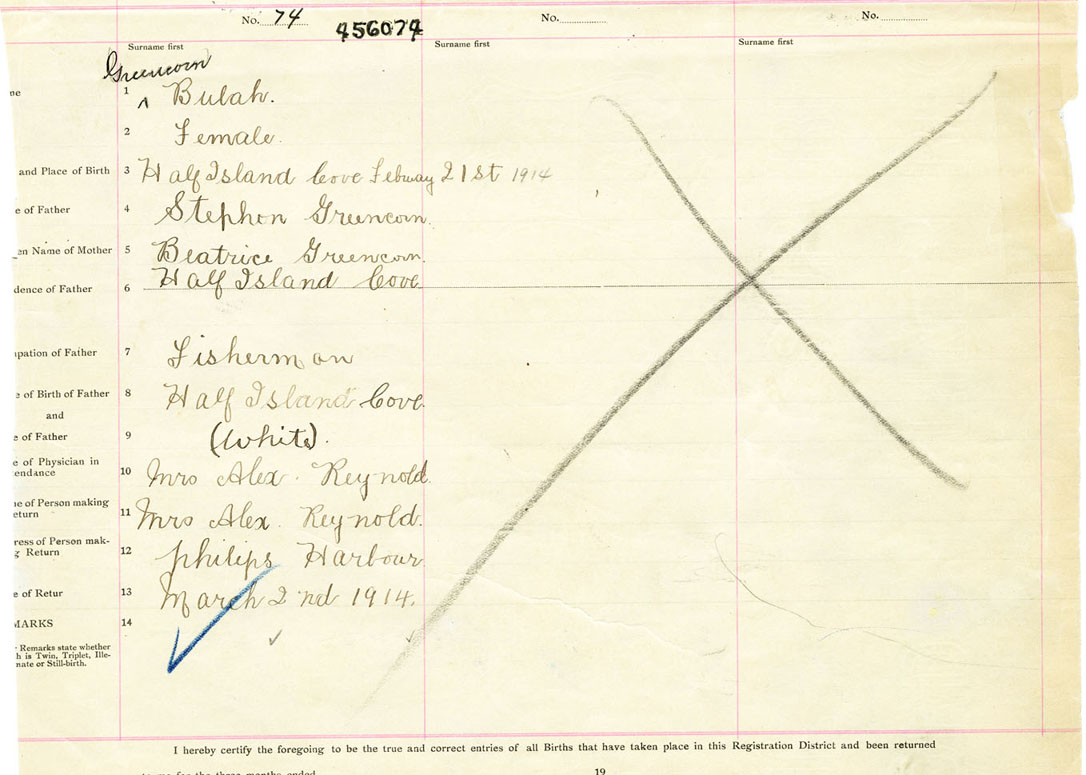 No. 74
456074
No.
No.
Surname first
Surname first
Surname first
Greencorn
1 ^ Bulah.
2 Female.
and Place of Birth 3 Half Island Cove Febuary 21st 1914
e of Father 4 Stephen Greencorn.
en Name of Mother 5 Beatrice Greencorn.
dence of Father 6 Half Island Cove
pation of Father 7 Fisherman
e of Birth of Father 8 Half Island Cove.
and
e of Father 9 (White).
e of Physician in
endance 10 Mrs Alex. Reynold.
ne of Person making
eturn 11 Mrs Alex. Reynold.
ress of Person mak-
g Return 12 philips Harbour.
e of Retur 13 March 2nd 1914.
MARKS 14
Remarks state whether
h is Twin, Triplet, Ille-
nate or Still-birth.
I hereby certify the foregoing to be the true and correct entries of all Births that have taken place in this Registration District and been returned
to me for the three months ended 19